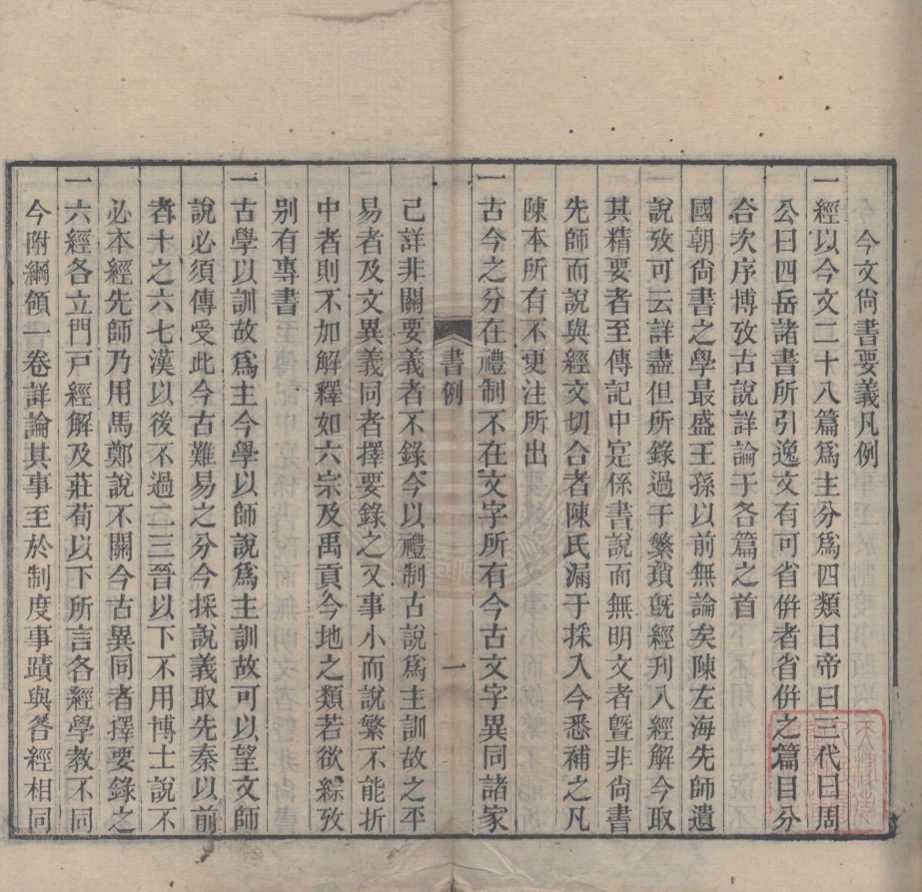 今文尙書要義凡例
一經以今文二十八篇爲主分爲四類曰帝曰三代曰周
公曰四岳諸書所引逸文有可省倂者省倂之篇目分
合次序博攷古說詳論于各篇之首
國朝尙書之學最盛王孫以前無論矣陳左海先師遺
說攷可云詳盡但所錄過于繁瑣旣經刊入經解今取
其精要者至傳記中寔係書說而無明文者曁非尙書
先師而說與經文切合者陳氏漏于採入今悉補之凡
陳本所有不更注所出
一古今之分在禮制不在文字所有今古文字異同諸家
書例
一
已詳非關要義者不錄今以禮制古說爲主訓故之平
易者及文異義同者擇要錄之又事小而說繁不能折
中者則不加解釋如六宗及禹貢今地之類若欲綜攷
别有專書
一古學以訓故爲主今學以師說爲主訓故可以望文師
說必須傳受此今古難易之分今採說義取先秦以前
者十之六七漢以後不過二三晉以下不用博士說不
必本經先師乃用馬鄭說不關今古異同者擇要錄之
一六經各立門戸經解及莊荀以下所言各經學教不同
今附綱領一卷詳論其事至於制度事蹟與各經相同